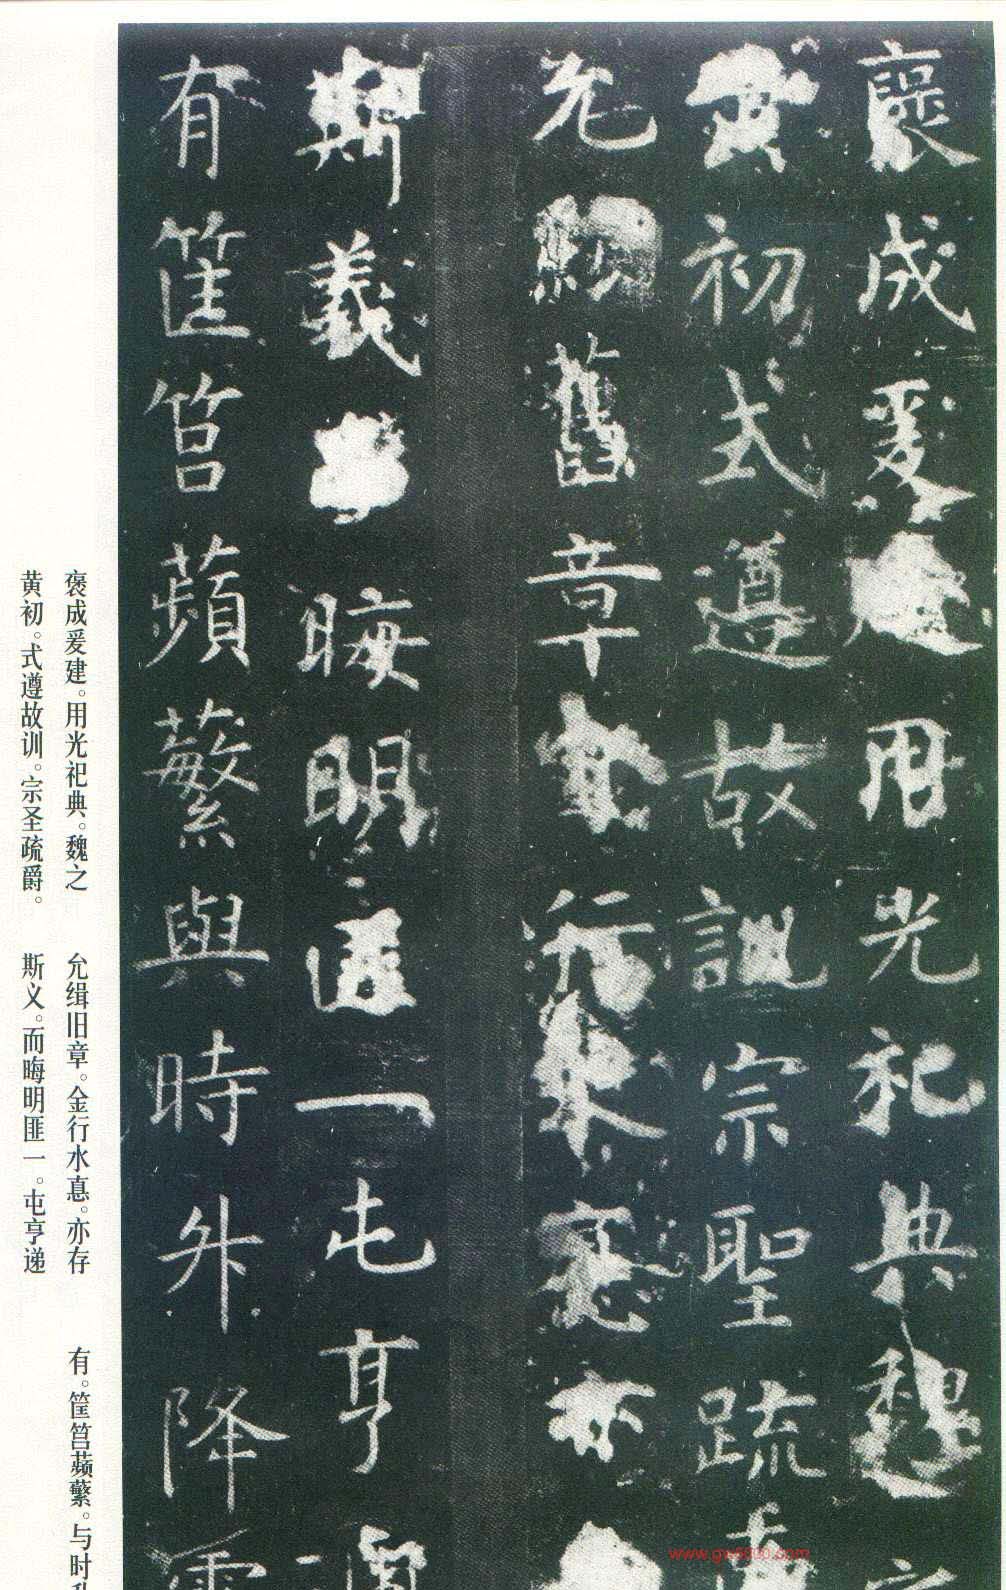 褒成爰建用光祀典魏
黃初式遵故訓宗聖疏
允緝舊章金行水悳亦
斯義晦明匪一屯亨
有筐筥蘋蘩與時升降
褒成爰建。用光祀典。魏之
黄初。式遵故训。宗圣疏爵。
允缉旧章。金行水悳。亦存
斯义。而晦明匪一。屯亨递
有。筐筥蘋蘩。与时